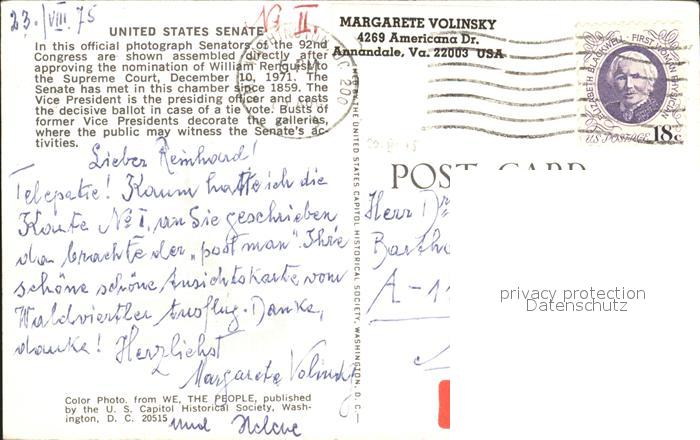 23./VIII.75
No II.
UNITED STATES SENATE
In this official photograph Senators of the 92nd
Congress are shown assembled directly after
approving the nomination of William Renquist to
the Supreme Court, December 10, 1971. The
Senate has met in this chamber since 1859. The
Vice President is the presiding officer and casts
the decisive ballot in case of a tie vote. Busts of
former Vice Presidents decorate the galleries,
where the public may witness the Senate's ac-
tivities.
Lieber Reinhard!
Telepatie! Kaum hatte ich die
Karte No I. an Sie geschrieben
da brachte der „post man" Ihre
schöne schöne Ansichtskarte vom
Waldviertler Ausflug. Danke,
danke! Herzlichst
Margarete Volinsky
und Helene
Color Photo. from WE, THE PEOPLE, published
by the U. S. Capitol Historical Society, Wash-
ington, D. C. 20515
BY THE UNITED STATES CAPITOL HISTORICAL SOCIETY, WASHINGTON, D. C.
MARGARETE VOLINSKY
4269 Americana Dr.
Annandale, Va. 22003 USA
DC 200
ELIZABETH BLACKWELL · FIRST WOMAN PHYSICIAN
U.S. POSTAGE 18c
POST CARD
Herr Dr
Barth
A-11
privacy protection
Datenschutz